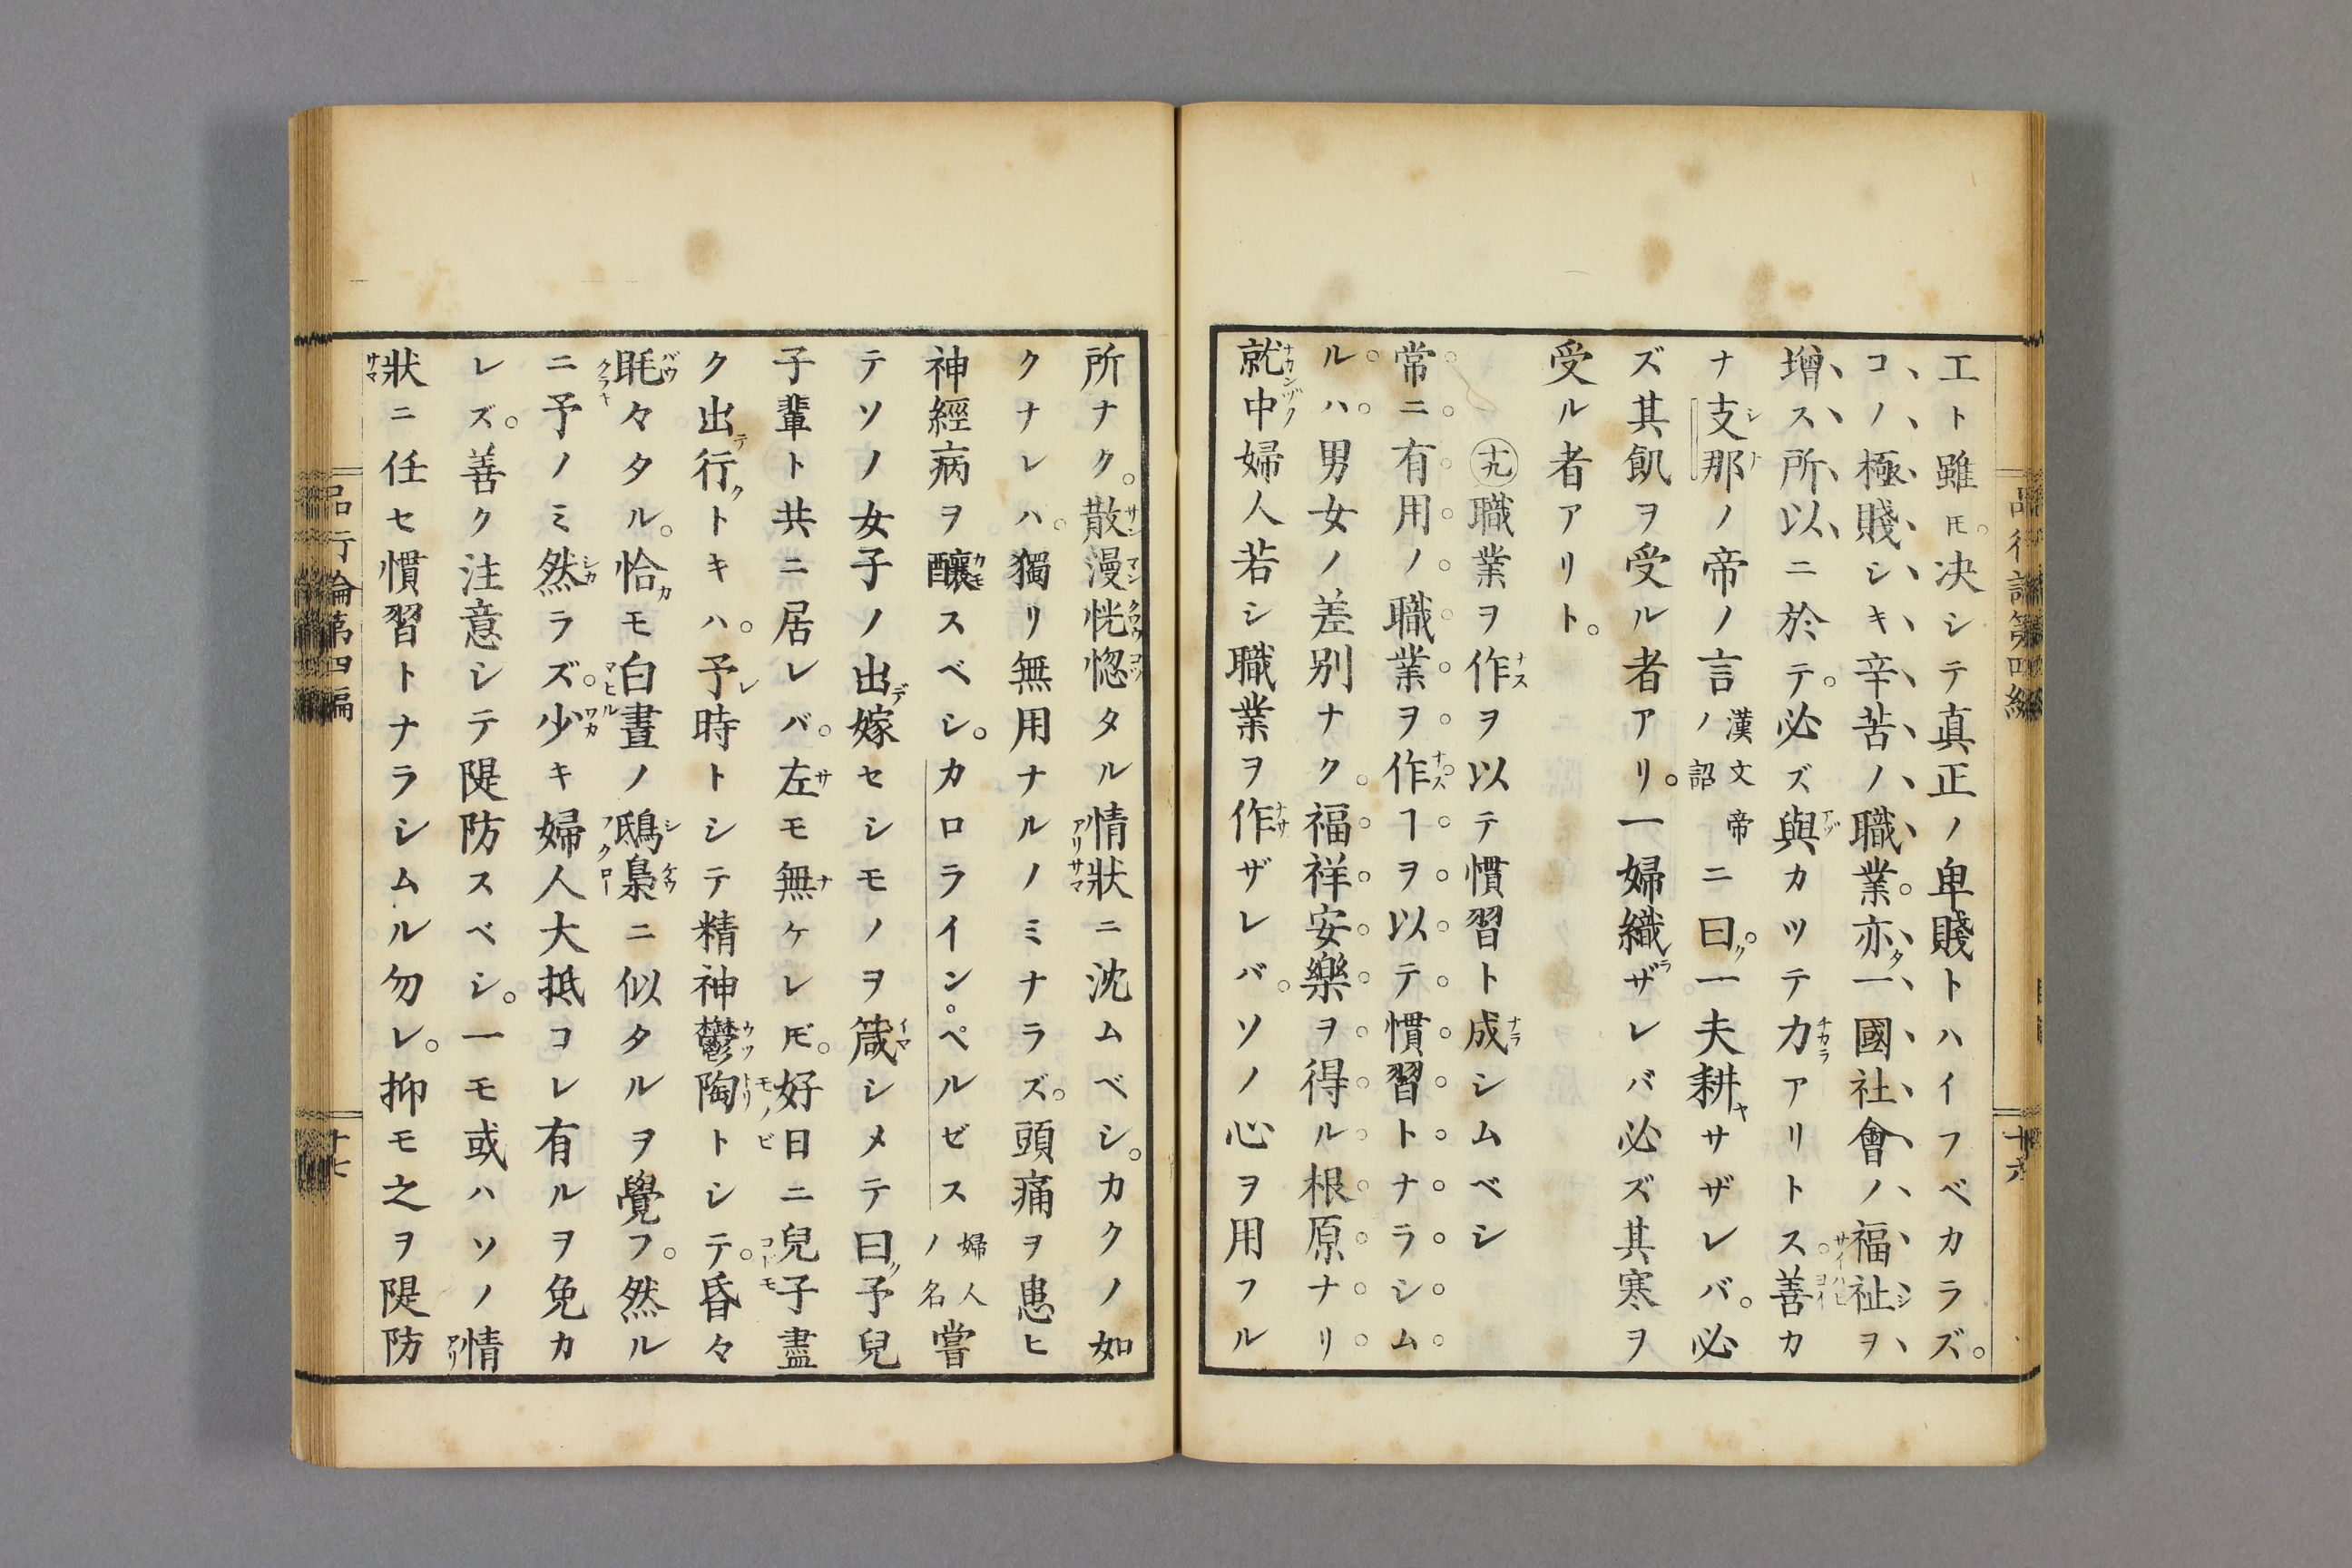 工ト雖𪜈。决シテ真正ノ卑賤トハイフベカラズ。
コノ極賤シキ辛苦ノ職業。亦一國社會ノ福祉ヲ
增ス所以ニ於テ。必ズ與カツテ力アリトス。善カ
ナ支那ノ帝ノ言ノ漢文帝詔ニ曰。一夫耕サザレバ。必
ズ其飢ヲ受ル者アリ。一婦織ザレバ必ズ其寒ヲ
受ル者アリト。
㊈職業ヲ作ヲ以テ慣習ト成シムベシ
常ニ有用ノ職業ヲ作ヿヲ以テ慣習トナラシム
ル。ハ。男女ノ差別ナク。福祥安樂ヲ得ル根原ナリ
就中婦人若シ職業ヲ作ザレバ。ソノ心ヲ用フル
品行論第四編
十六
所ナク。散漫恍惚タル情狀ニ沈ムベシ。カクノ如
クナレハ。獨リ無用ナルノミナラズ。頭痛ヲ患ヒ
神經病ヲ釀スベシ。カロライン。ペルゼス婦人ノ名嘗
テソノ女子ノ出嫁セシモノヲ箴シメテ曰予兒
子輩ト共ニ居レバ。左モ無ケレ𪜈。好日ニ兒子盡
ク出行トキハ。予時トシテ精神鬱陶トシテ。昏々
眊々タル。恰モ白晝ノ鴟梟ニ似タルヲ覺フ。然ル
ニ予ノミ然ラズ。少キ婦人大抵コレ有ルヲ免カ
レズ。善ク注意シテ隄防スベシ。一モ或ハソノ情
狀ニ任セ慣習トナラシムル勿レ。抑モ之ヲ隄防
品行論第四編
十七